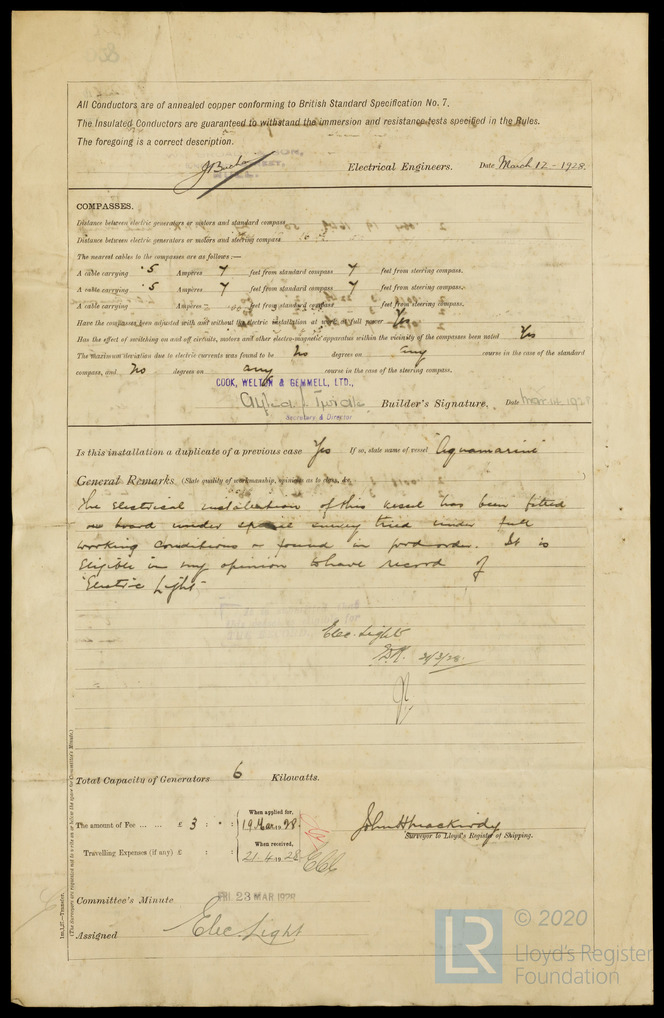 All Conductors are of annealed copper conforming to British Standard Specification No. 7.
The Insulated Conductors are guaranteed to withstand the immersion and resistance tests specified in the Rules.
The foregoing is a correct description.
Electrical Engineers. Date March 12 - 1928.
COMPASSES.
Distance between electric generators or motors and standard compass
Distance between electric generators or motors and steering compass
The nearest cables to the compasses are as follows:—
A cable carrying .5 Ampères 7 feet from standard compass 7 feet from steering compass.
A cable carrying .5 Ampères 7 feet from standard compass 7 feet from steering compass.
A cable carrying Ampères feet from standard compass feet from steering compass.
Have the compasses been adjusted with and without the electric installation at work at full power Yes
Has the effect of switching on and off circuits, motors and other electro-magnetic apparatus within the vicinity of the compasses been noted Yes
The maximum deviation due to electric currents was found to be No degrees on any course in the case of the standard
compass, and No degrees on any course in the case of the steering compass.
COOK, WELTON & GEMMELL, LTD.,
Builder's Signature. Date
Secretary & Director
Is this installation a duplicate of a previous case Yes If so, state name of vessel "Aquamarine"
General Remarks (State quality of workmanship, opinions as to class, &c.
The Electrical installation of this vessel has been fitted
on board under special survey tried under full
working conditions & found in good order. It is
Eligible in my opinion to have record of
"Electric Light"
Elec. Light
21/3/28
Total Capacity of Generators 6 Kilowatts.
The amount of Fee ... ... £ 3 : • :
When applied for,
19 Mar 1928
John H Mackirdy
Surveyor to Lloyd's Register of Shipping.
Travelling Expenses (if any) £ : :
When received,
21.4.1928
Committee's Minute FRI 23 MAR 1928
Assigned Elec Light
1m.1,27.—Transfer.
(The Surveyors are requested not to write on or below the space for Committee's Minute.)
LR
© 2020
Lloyd's Register
Foundation